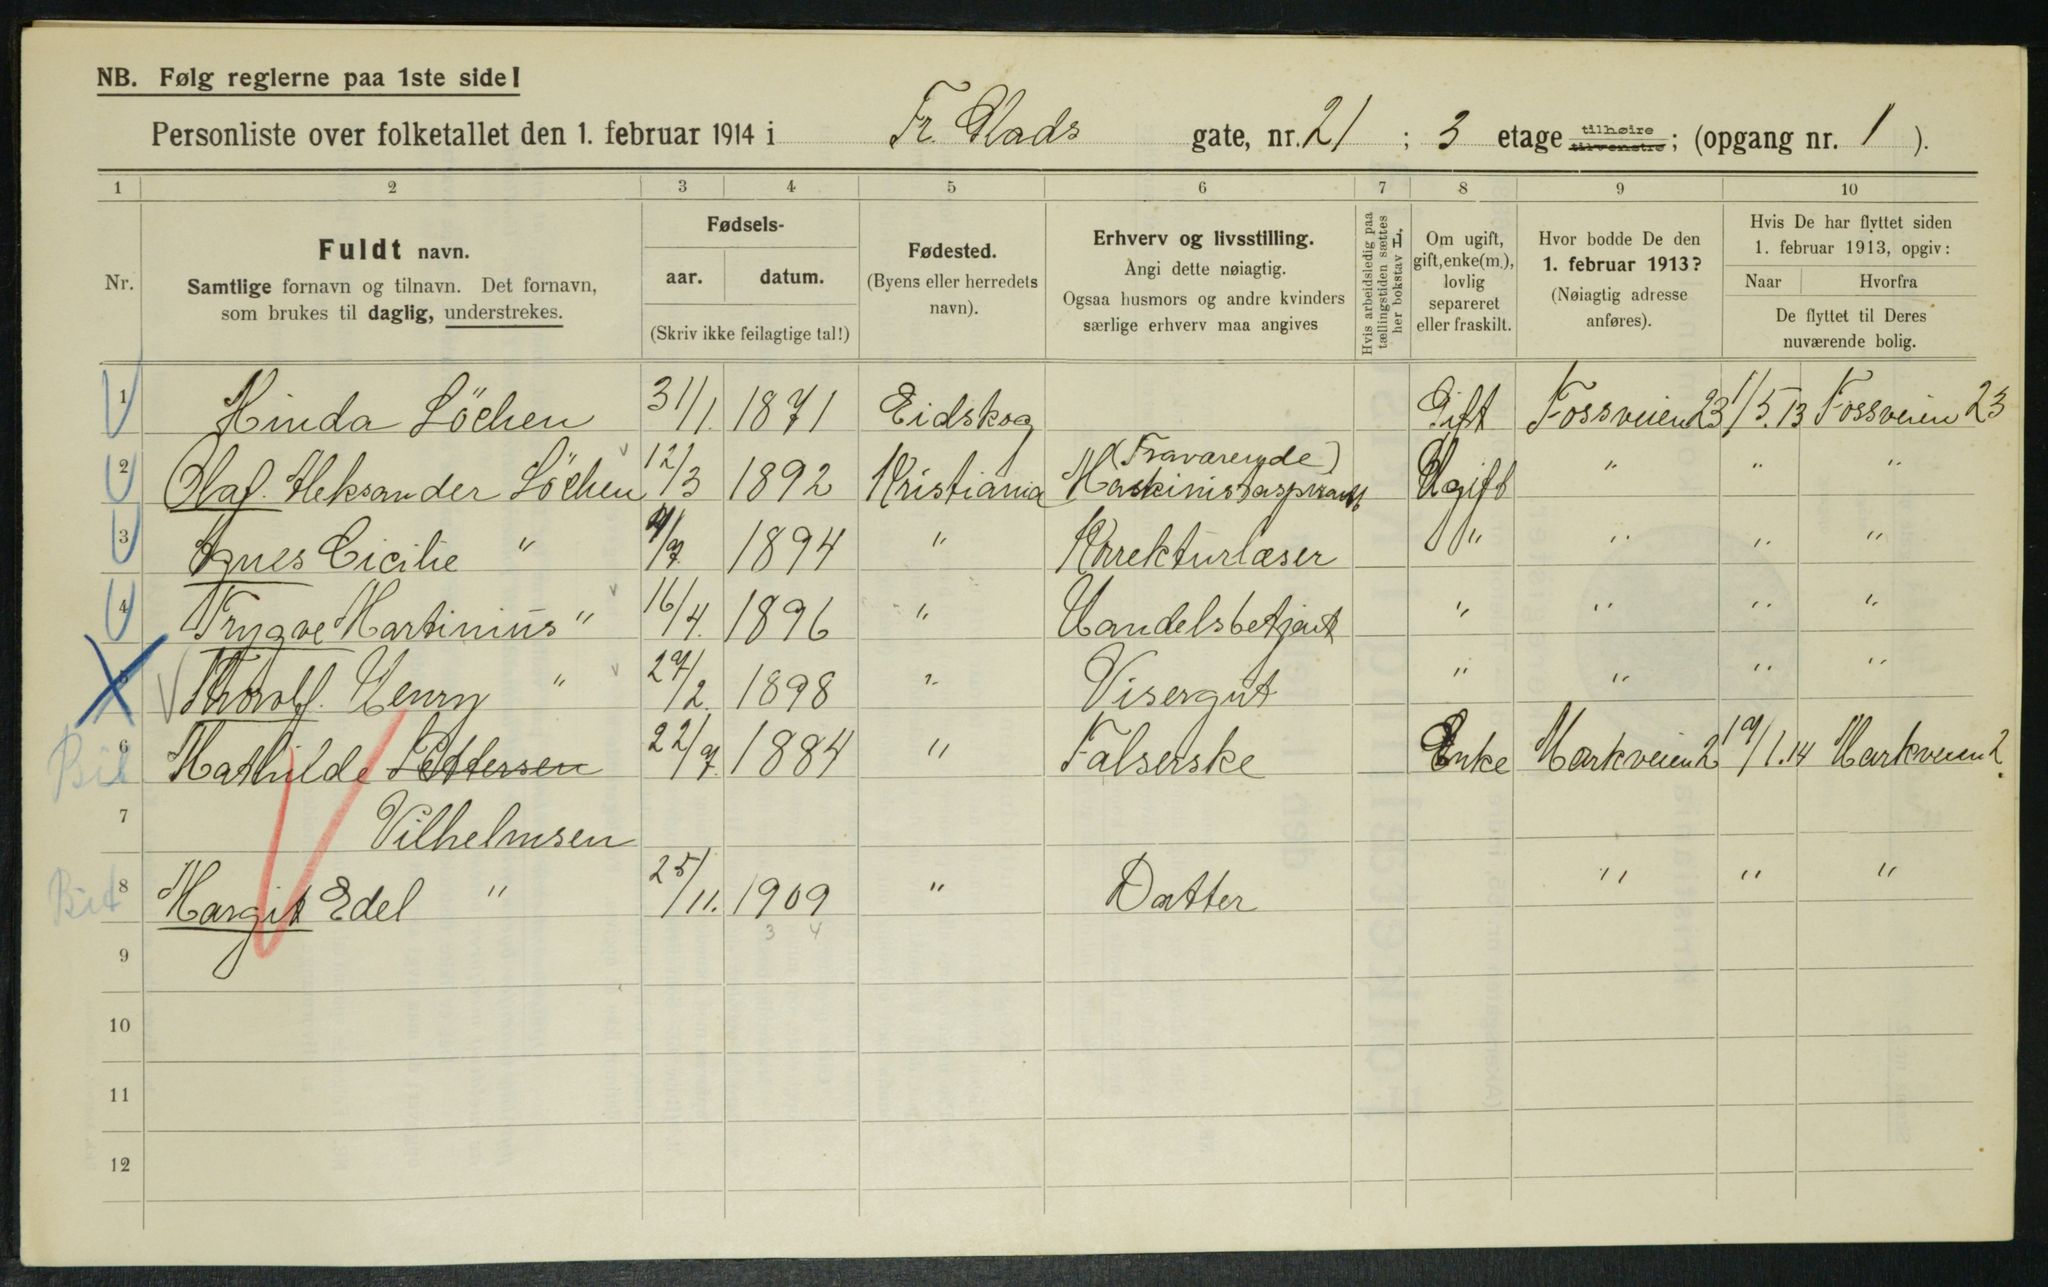 NB. Følg reglerne paa 1ste side!
Personliste over folketallet den 1. februar 1914 i Fr. Glads gate, nr. 21 ; 3 etage tilhøire tilvenstre ; (opgang nr. 1 ).
1 2 3 4 5 6 7 8 9 10
Nr.
Fuldt navn.
Samtlige fornavn og tilnavn. Det fornavn,
som brukes til daglig, understrekes.
Fødsels-
aar. datum.
(Skriv ikke feilagtige tal!)
Fødested.
(Byens eller herredets
navn).
Erhverv og livsstilling.
Angi dette nøiagtig.
Ogsaa husmors og andre kvinders
særlige erhverv maa angives
Hvis arbeidsledig paa
tællingstiden sættes
her bokstav L.
Om ugift,
gift, enke(m.),
lovlig
separeret
eller fraskilt.
Hvor bodde De den
1. februar 1913?
(Nøiagtig adresse
anføres).
Hvis De har flyttet siden
1. februar 1913, opgiv:
Naar Hvorfra
De flyttet til Deres
nuværende bolig.
1 Hinda Löchen 31/1. 1871 Eidskog Gift Fossveien 23 1/5.13 Fossveien 23
2 Olaf. Aleksander Löchen 12/3 1892 Kristiania (Fraværende) Maskinistaspirant Ugift " " "
3 Agnes Cicilie " 1894 " Korrekturlæser " " " "
4 Trygve Martinius " 16/4. 1896 " Handelsbetjent " " " "
5 Thorolf. Henry " 27/2. 1898 " Visergut " " " "
6 Mathilde Pettersen 22/7. 1884 " Falserske Enke Markveien 2 19/1.14 Markveien 2.
7 Vilhelmsen
Bit
8 Margit Edel " 25/11. 1909 " Datter " " "
3 4
9
10
11
12